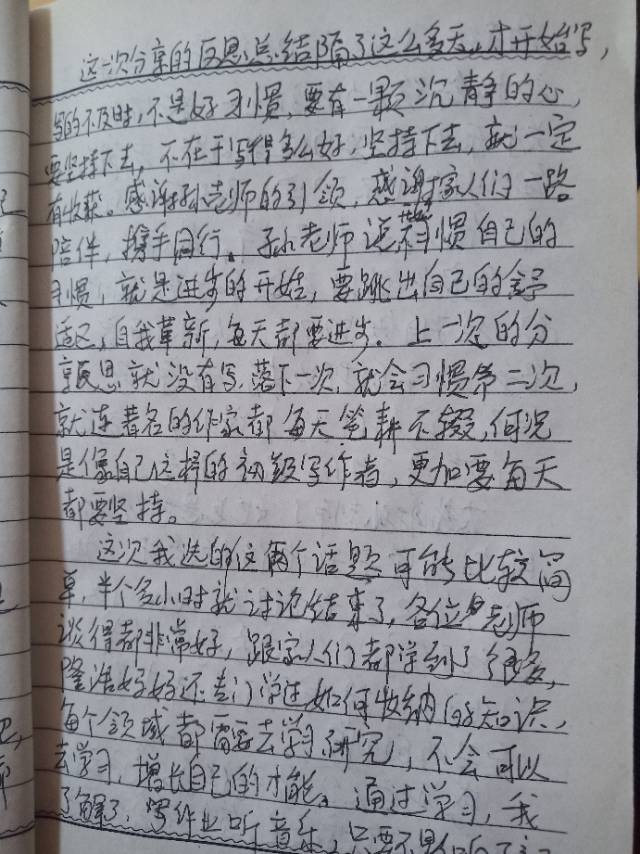 这一次分享的反思总结隔了这么多天，才开始写，
写的不及时，不是好习惯，要有一颗沉静的心，
要坚持下去，不在于写得多么好，坚持下去，就一定
有收获。感谢孙老师的引领，感谢家人们一路
陪伴，携手同行。孙老师说不习惯自己的
习惯，就是进步的开始，要跳出自己的舒
适区，自我革新，每天都要进步。上一次的分
享反思就没有写，落下一次，就会习惯第二次，
就连著名的作家都每天笔耕不辍，何况
是像自己这样的初级写作者，更加要每天
都要坚持。
这次我选的这两个话题可能比较简
单，半个多小时就讨论结束了，各位老师
谈得都非常好，跟家人们都学到了很多，
隆浩妈妈还专门学过如何收纳的知识，
每个领域都需要去学习研究，不会可以
去学习，增长自己的才能。通过学习，我
了解了，写作业听音乐，只要不影响